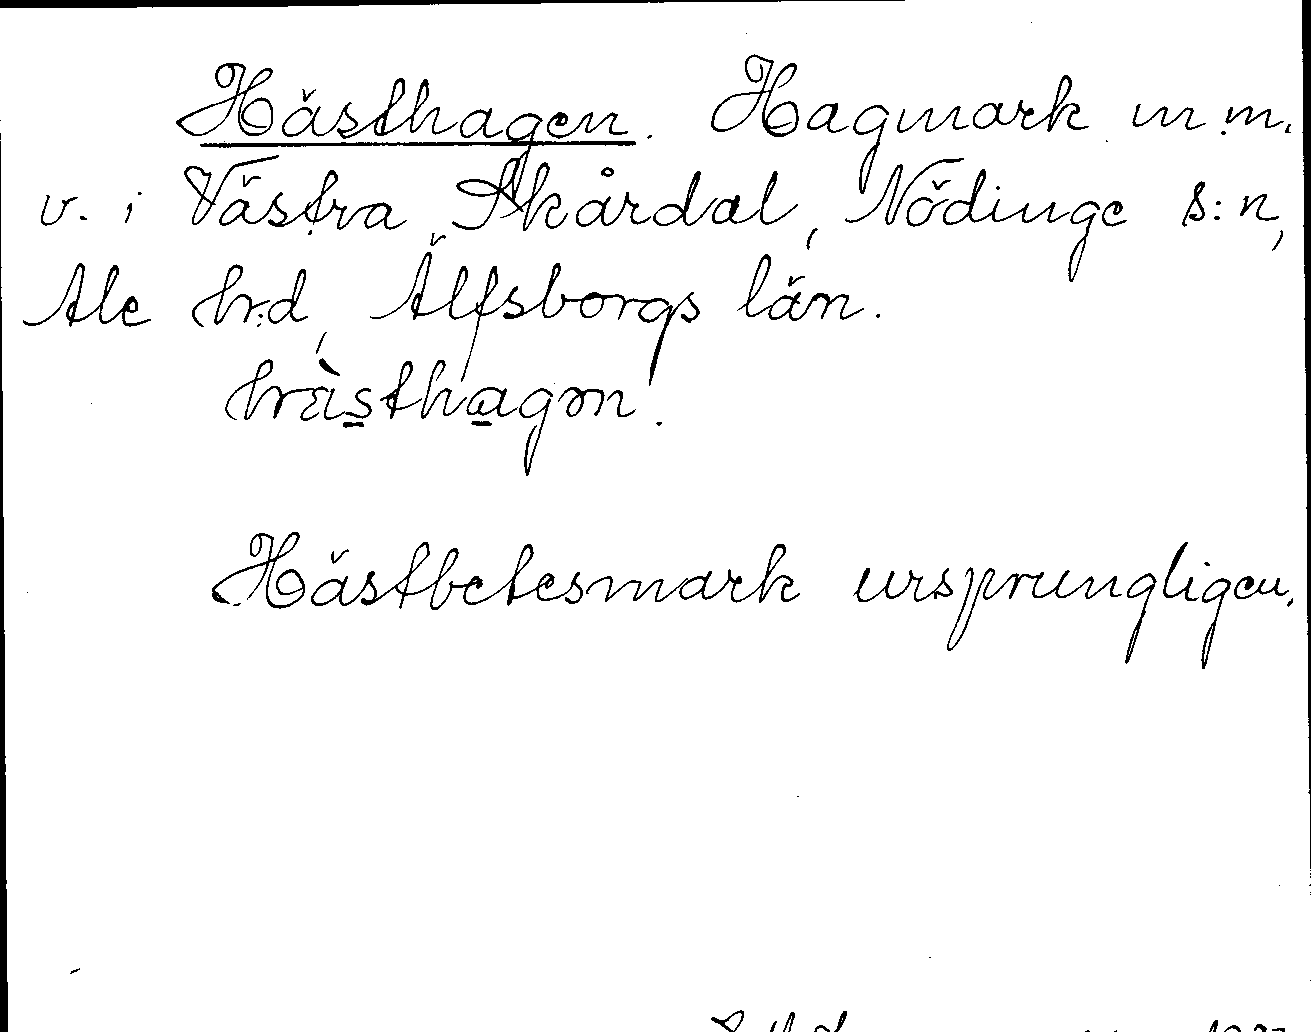 Hästhagen. Hagmark m.m.
v. i Västra Skårdal, Nödinge s:n,
Ale hrd, Älfsborgs län.
hàsthagɷn.
Hästbetesmark ursprungligen.